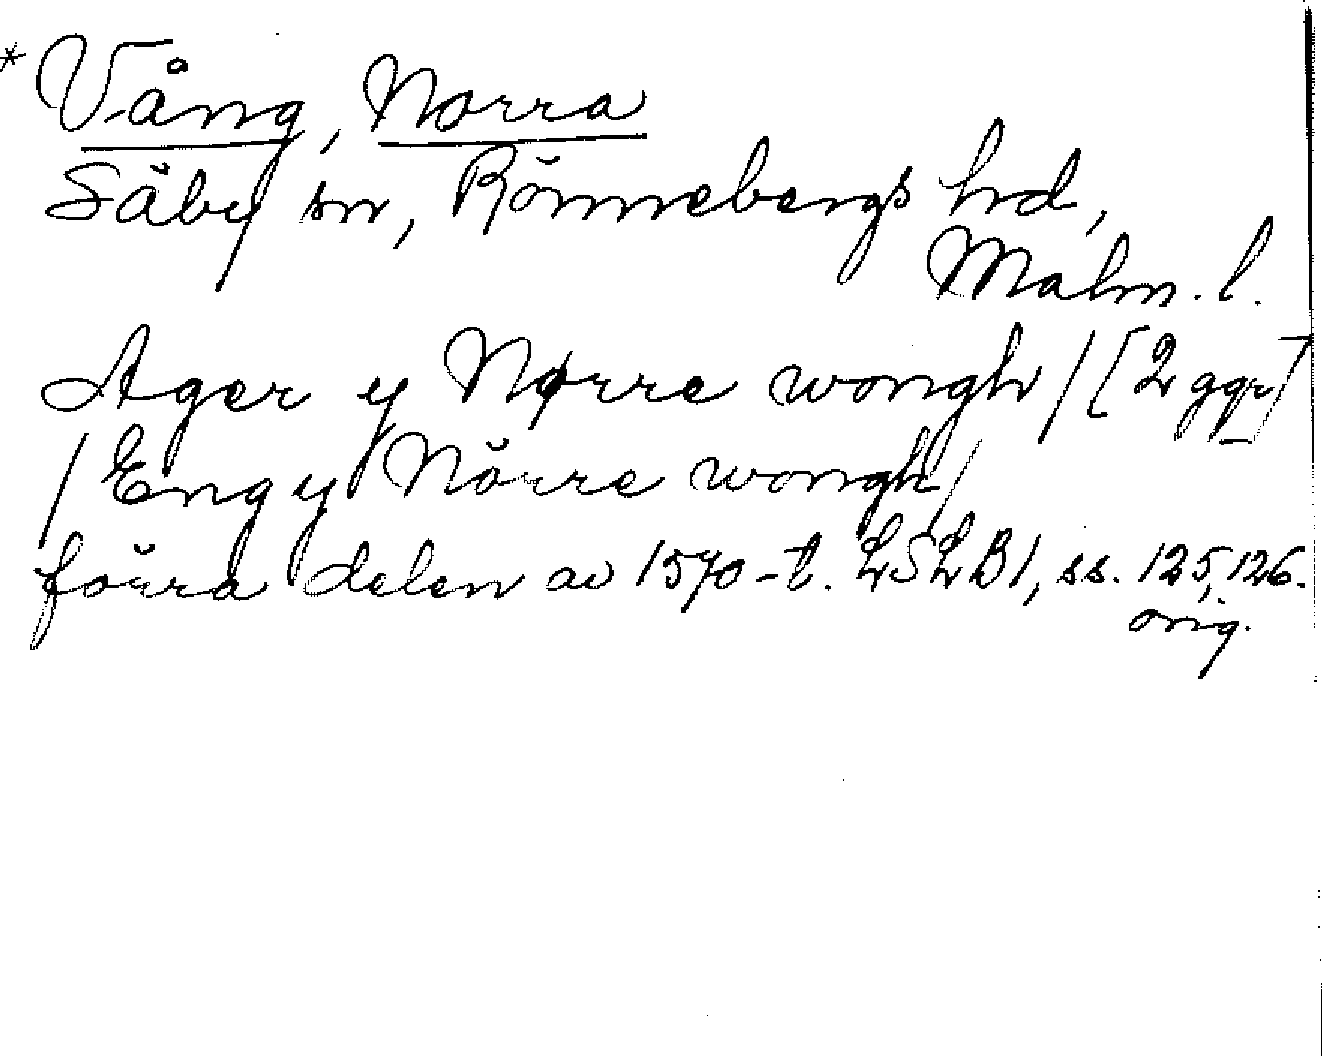 * Vång, Norra
Säby sn, Rönnebergs hd,
Malm. l.
Ager y Nørre wongh / [2 ggr]
/ Eng y Nörre wongh /
förra delen av 1570-t. LSLB1, ss. 125, 126.
orig.